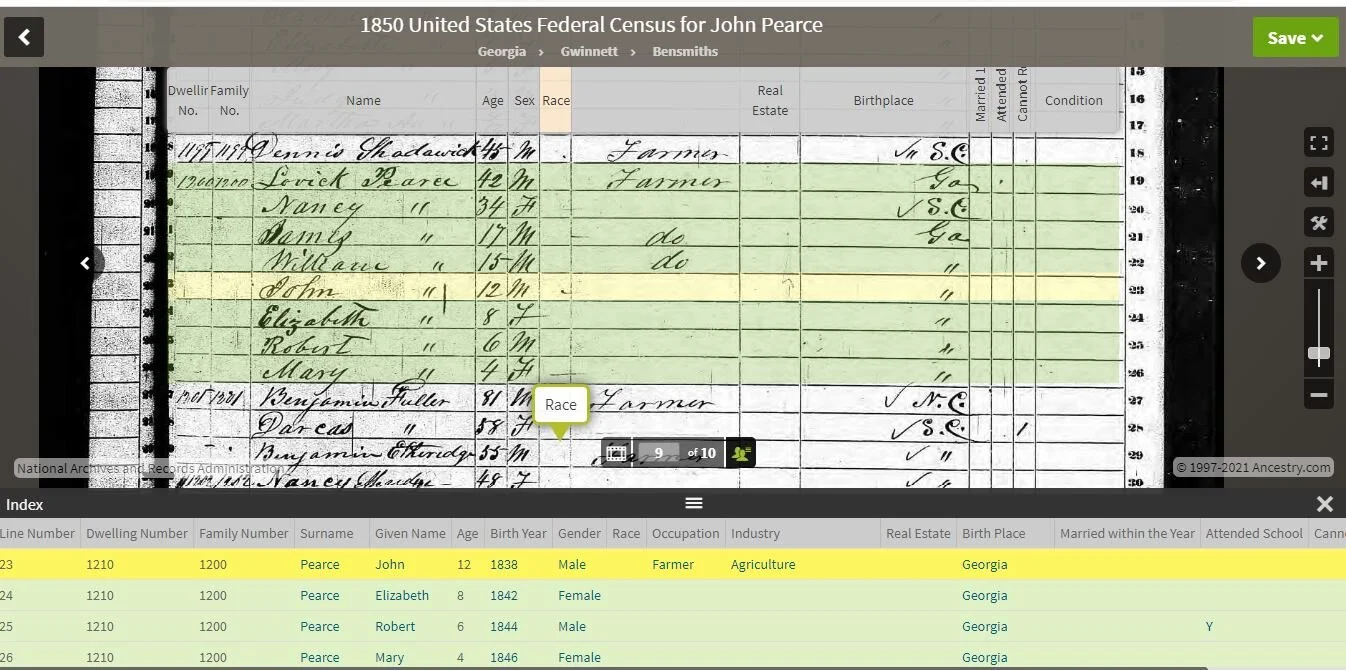 1850 United States Federal Census for John Pearce
Georgia › Gwinnett › Bensmiths
Save
Dwellin No. Family No. Name Age Sex Race Real Estate Birthplace Married 1 Attended Cannot R Condition
15
16
17
1199 1199 Dennis Shadawick 45 M Farmer S.C. 18
1200 1200 Lovick Pearce 42 M Farmer Ga 19
Nancy " 34 F S.C. 20
James " 17 M do Ga 21
William " 15 M do " 22
John " 12 M " 23
Elizabeth " 8 F " 24
Robert " 6 M " 25
Mary " 4 F " 26
1201 1201 Benjamin Fuller 81 M Farmer N.C. 27
Darcas " 58 F S.C. / 28
Benjamin Etheridge 55 M " 29
Nancy 48 F 30
Race
9 of 10
National Archives and Records Administration
© 1997-2021 Ancestry.com
Index
Line Number Dwelling Number Family Number Surname Given Name Age Birth Year Gender Race Occupation Industry Real Estate Birth Place Married within the Year Attended School Cann
23 1210 1200 Pearce John 12 1838 Male Farmer Agriculture Georgia
24 1210 1200 Pearce Elizabeth 8 1842 Female Georgia
25 1210 1200 Pearce Robert 6 1844 Male Georgia Y
26 1210 1200 Pearce Mary 4 1846 Female Georgia